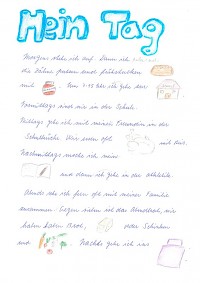 Mein Tag
Morgens stehe ich auf. Dann ich
die Zähne putzen und frühstücken
mit . Um 7:45 Uhr ich gehe zur
Vormittags sind wir in der Schule.
Mittags gehe ich mit meine Freundin in der
Schulküche. Wir essen oft mit
Nachmittags mache ich mein
und dann ich gehe in der
Abends sehe ich fern oft mit meiner Familie
zusammen. Gegen sieben ist das Abendbrot, wir
haben Brot, oder Schinken
und . Nachts gehe ich ins